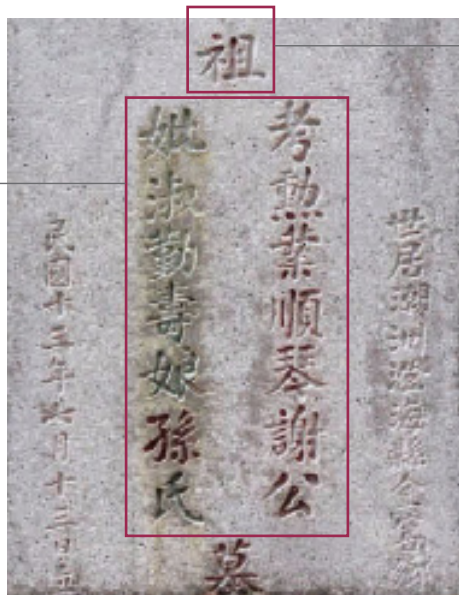 世居潮洲澄海縣
祖
考勲業順琴謝公
妣淑勤壽娘孫氏
墓
民國十三年 月十三日立